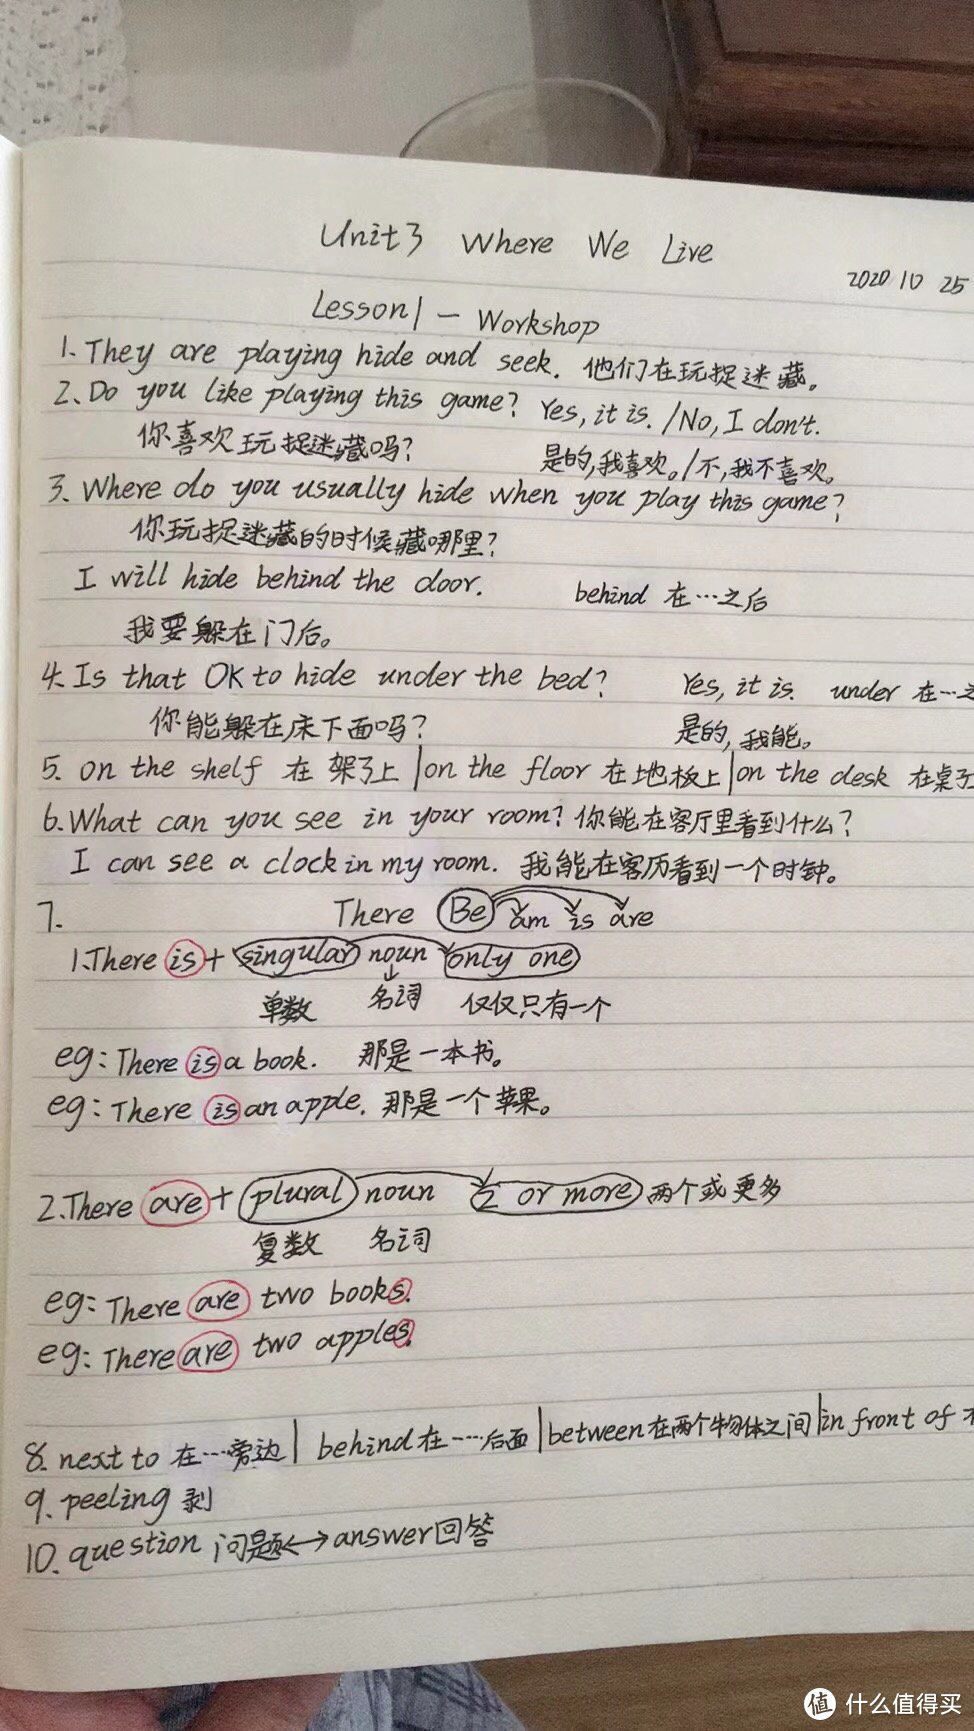 Unit3 Where We Live
2020 10 25
Lesson1 — Workshop
1. They are playing hide and seek. 他们在玩捉迷藏。
2. Do you like playing this game? Yes, it is. /No, I don't.
你喜欢玩捉迷藏吗? 是的,我喜欢。/不,我不喜欢。
3. Where do you usually hide when you play this game?
你玩捉迷藏的时候藏哪里?
I will hide behind the door. behind 在…之后
我要躲在门后。
4. Is that OK to hide under the bed? Yes, it is. under 在…之
你能躲在床下面吗? 是的,我能。
5. on the shelf 在架子上 | on the floor 在地板上 | on the desk 在桌子
6. What can you see in your room? 你能在客厅里看到什么?
I can see a clock in my room. 我能在客历看到一个时钟。
7. There Be am is are
1. There is + singular noun only one
单数 名词 仅仅只有一个
eg: There is a book. 那是一本书。
eg: There is an apple. 那是一个苹果。
2. There are + plural noun 2 or more 两个或更多
复数 名词
eg: There are two books.
eg: There are two apples.
8. next to 在…旁边 | behind 在…后面 | between 在两个物体之间 | in front of
9. peeling 剥
10. question 问题 ←→ answer 回答
值 什么值得买